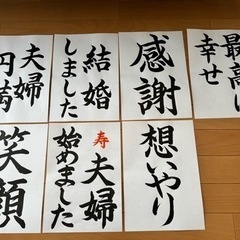 夫婦
円満
結婚
しました
感謝
最高に
幸せ
笑顔
寿 夫婦
始めました
想いやり